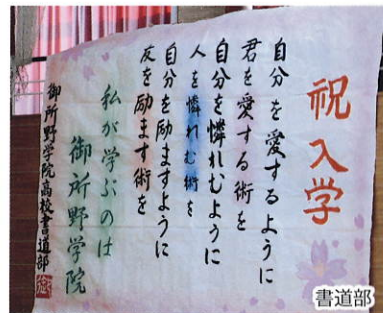 祝入学
自分を愛するように
君を愛する術を
自分を憐れむように
人を憐れむ術を
自分を励ますように
友を励ます術を
私が学ぶのは
御所野学院
御所野学院高校書道部
書道部